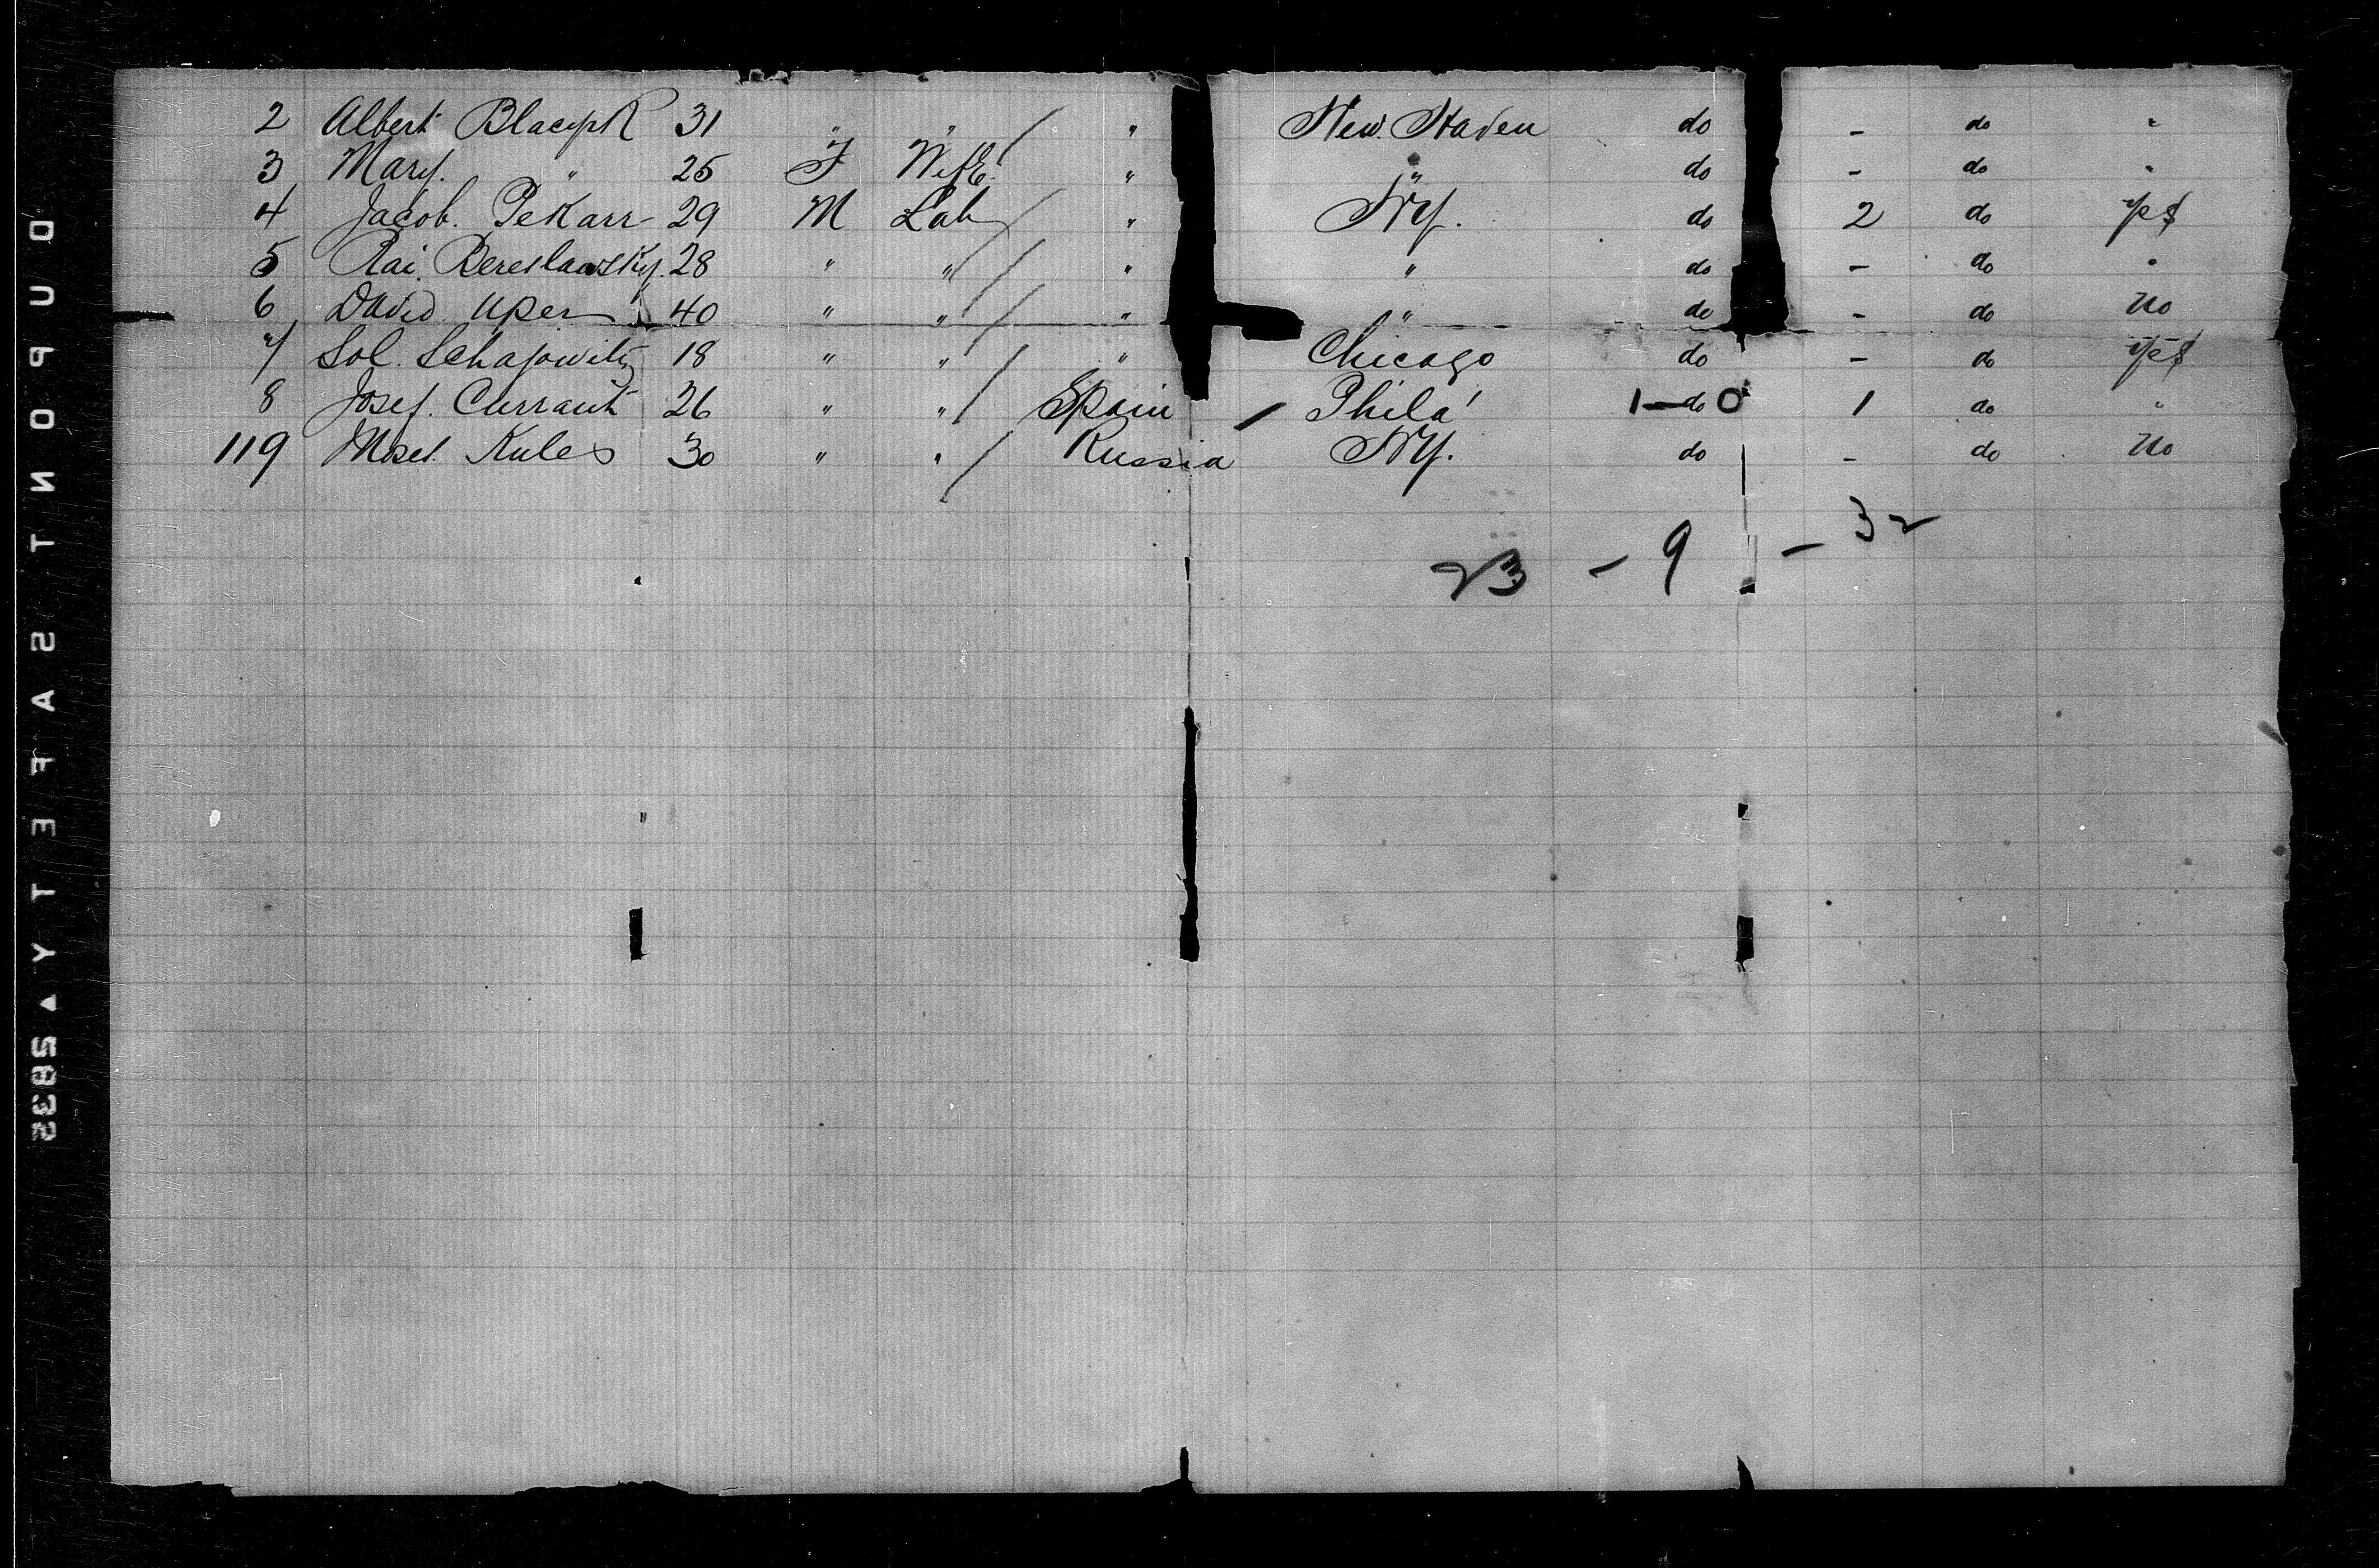 2 Albert Blaczpk 31 " " / " New. Haven do - do "
3 Mary. " 25 F Wife. " " do - do "
4 Jacob. Pekarr 29 M Lab / " NY. do 2 do yes
5 Rai. Bereslawsky. 28 " " / " " do - do "
6 David 40 " " / " " do - do No
7 Sol. Schapowitz 18 " " / " Chicago do - do yes
8 Josef. Currant 26 " " / Spain / Phila 1 - do 0 1 do "
119 Moses. Kules 30 " " / Russia NY. do - do No
23 - 9 - 32
DUPONT SAFETY 2835